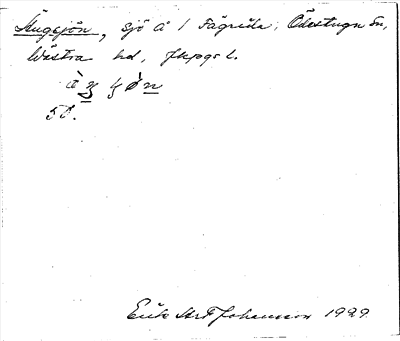 Ängsjön, sjö å 1 Fägrida, Ödestugu sn,
Västra hd, Jkpgs l.
50.
Erik Art Johansson 1929